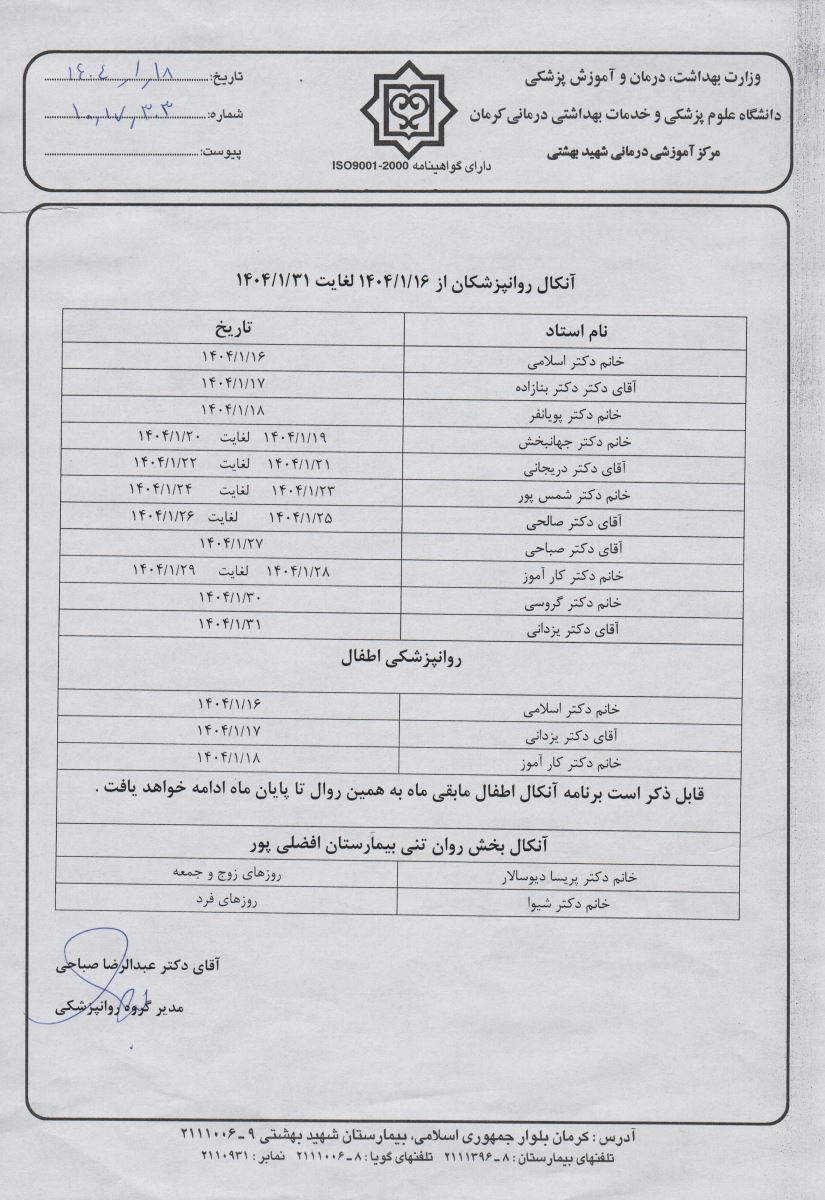 وزارت بهداشت، درمان و آموزش پزشکی
دانشگاه علوم پزشکی و خدمات بهداشتی درمانی کرمان
مرکز آموزشی درمانی شهید بهشتی
دارای گواهینامه ISO9001-2000
تاریخ: ۱۴۰۴/۱/۱۸
شماره: ۱۰،۱۷،۳۰۳
پیوست:
آنکال روانپزشکان از ۱۴۰۴/۱/۱۶ لغایت ۱۴۰۴/۱/۳۱
نام استاد تاریخ
خانم دکتر اسلامی ۱۴۰۴/۱/۱۶
آقای دکتر دکتر بنازاده ۱۴۰۴/۱/۱۷
خانم دکتر پویانفر ۱۴۰۴/۱/۱۸
خانم دکتر جهانبخش ۱۴۰۴/۱/۱۹ لغایت ۱۴۰۴/۱/۲۰
آقای دکتر دریجانی ۱۴۰۴/۱/۲۱ لغایت ۱۴۰۴/۱/۲۲
خانم دکتر شمس پور ۱۴۰۴/۱/۲۳ لغایت ۱۴۰۴/۱/۲۴
آقای دکتر صالحی ۱۴۰۴/۱/۲۵ لغایت ۱۴۰۴/۱/۲۶
آقای دکتر صباحی ۱۴۰۴/۱/۲۷
خانم دکتر کار آموز ۱۴۰۴/۱/۲۸ لغایت ۱۴۰۴/۱/۲۹
خانم دکتر گروسی ۱۴۰۴/۱/۳۰
آقای دکتر یزدانی ۱۴۰۴/۱/۳۱
روانپزشکی اطفال
خانم دکتر اسلامی ۱۴۰۴/۱/۱۶
آقای دکتر یزدانی ۱۴۰۴/۱/۱۷
خانم دکتر کار آموز ۱۴۰۴/۱/۱۸
قابل ذکر است برنامه آنکال اطفال مابقی ماه به همین روال تا پایان ماه ادامه خواهد یافت .
آنکال بخش روان تنی بیمارستان افضلی پور
خانم دکتر پریسا دیوسالار روزهای زوج و جمعه
خانم دکتر شیوا روزهای فرد
آقای دکتر عبدالرضا صباحی
مدیر گروه روانپزشکی
آدرس : کرمان بلوار جمهوری اسلامی، بیمارستان شهید بهشتی ۹ ـ ۲۱۱۱۰۰۶
تلفنهای بیمارستان : ۸ ـ ۲۱۱۱۳۹۶ تلفنهای گویا : ۸ ـ ۲۱۱۱۰۰۶ نمابر : ۲۱۱۰۹۳۱